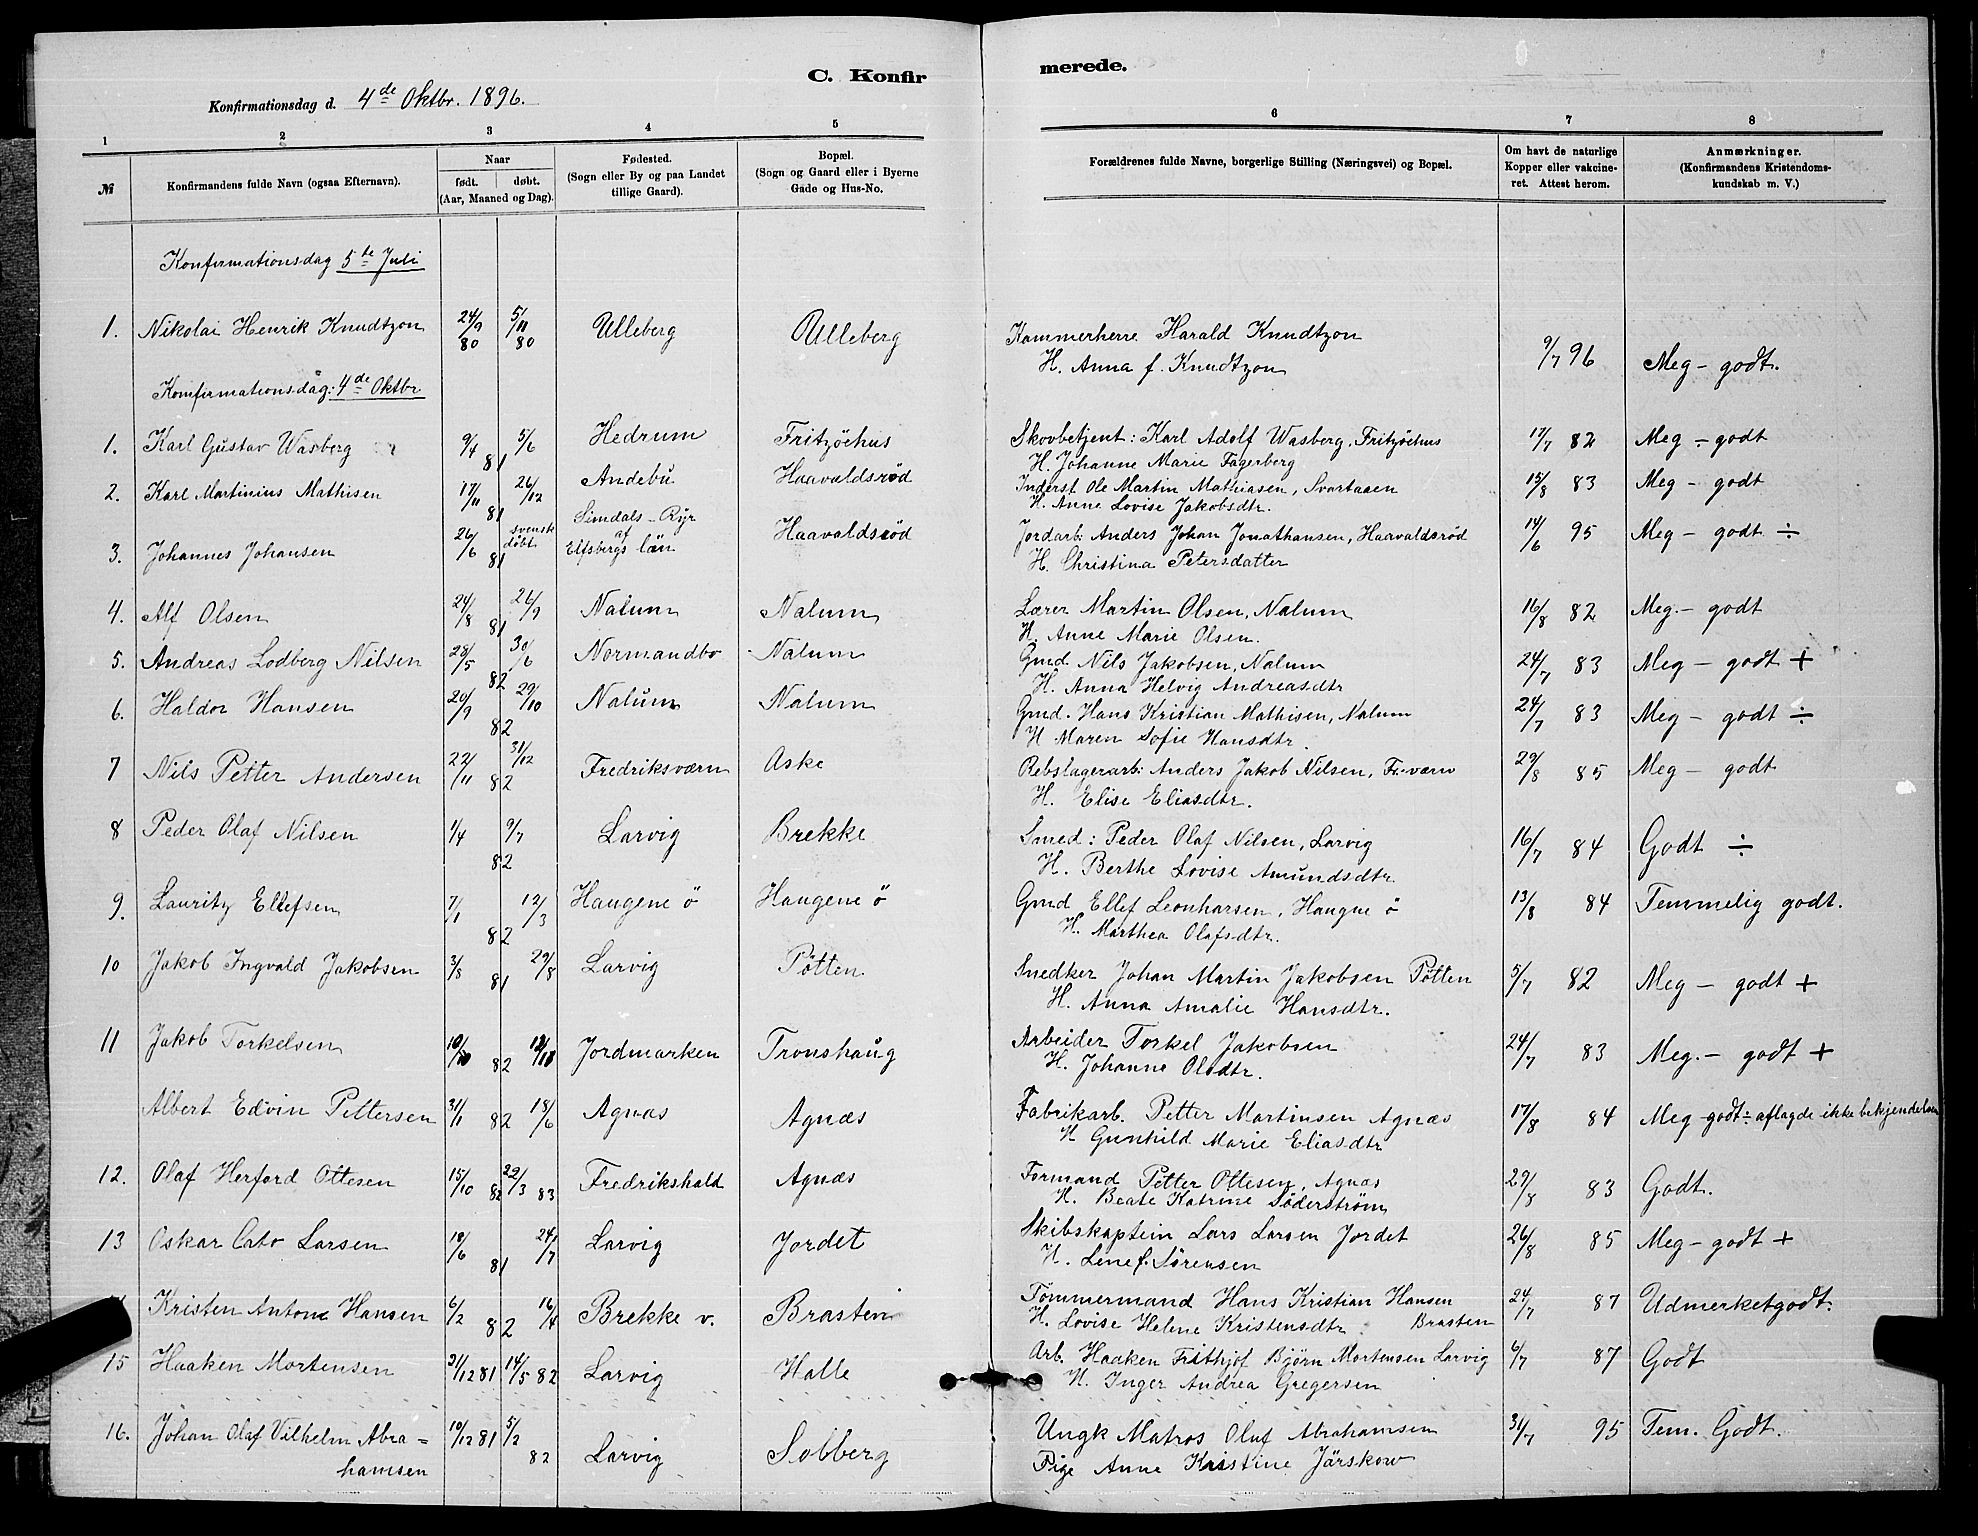 C. Konfir merede.
Konfirmationsdag d. 4de Oktbr. 1896.
1 2 3 4 5 6 7 8
№ Konfirmandens fulde Navn (ogsaa Efternavn). Naar født. døbt. (Aar, Maaned og Dag). Fødested. (Sogn eller By og paa Landet tillige Gaard). Bopæl. (Sogn og Gaard eller i Byerne Gade og Hus-No. Forældrenes fulde Navne, borgerlige Stilling (Næringsvei) og Bopæl. Om havt de naturlige Kopper eller vakcineret. Attest herom. Anmærkninger. (Konfirmandens Kristendomskundskab m. V.)
Konfirmationsdag 5te Juli
1. Nikolai Henrik Knudtzon 24/9 80 5/11 80 Ulleberg Ulleberg Kammerherre Harald Knudtzon 9/7 96 Meg - godt.
H. Anna f. Knudtzon
Konfirmationsdag: 4de Oktbr.
1. Karl Gustav Wasberg 9/4 81 5/6 Hedrum Fritzöehus Skovbetjent: Karl Adolf Wasberg, Fritzöehus 17/7 82 Meg - godt
H. Johanne Marie Fagerberg
2. Karl Martinius Mathisen 17/11 81 26/12 Andebu Haavaldsrød Inderst Ole Martin Mathiasen, Svartaaen 15/8 83 Meg - godt
H. Anne Lovise Jakobsdtr.
3. Johannes Johansen 26/6 81 svensk døbt Simdals-Ryr af Elfsbergs län Haavaldsrød Jordarb: Anders Johan Jonathansen, Haavaldsrød 14/6 95 Meg - godt ÷
H. Christina Petersdatter
4. Alf Olsen 24/8 81 26/9 Nalum Nalum Lærer Martin Olsen, Nalum 16/8 82 Meg. - godt
H. Anne Marie Olsen.
5. Andreas Lodberg Nilsen 28/5 82 30/6 Normandbo Nalum Gmd. Nils Jakobsen, Nalum 24/7 83 Meg - godt +
H. Anna Helvig Andreasdtr
6. Haldor Hansen 20/9 82 29/10 Nalum Nalum Gmd. Hans Kristian Mathisen, Nalum 24/7 83 Meg - godt ÷
H Maren Sofie Hansdtr.
7 Nils Petter Andersen 22/11 82 31/12 Fredriksværn Aske Rebslagerarb: Anders Jakob Nilsen, Fr.værn 29/8 85 Meg - godt
H. Elise Eliasdtr.
8 Peder Olaf Nilsen 1/4 82 9/7 Larvig Brekke Smed: Peder Olaf Nilsen, Larvig 16/7 84 Godt ÷
H. Berthe Lovise Amundsdtr.
9. Lauritz Ellefsen 7/1 82 12/3 Haugene ö Haugene ö Gmd Ellef Leonharsen, Haugne ö 13/8 84 Temmelig godt.
H. Marthea Olafsdtr.
10 Jakob Ingvald Jakobsen 3/8 81 29/8 Larvig Pötten Snedker Johan Martin Jakobsen Pötten 5/7 82 Meg - godt +
H. Anna Amalie Hansdtr.
11 Jakob Torkelsen 82 Jordmarken Tronshaug Arbeider Torkel Jakobsen 24/7 83 Meg. - godt +
H. Johanne Olsdtr.
Albert Edvin Pettersen 31/1 82 18/6 Agnæs Agnæs Fabrikarb. Petter Martinsen Agnæs 17/8 84 Meg godt ÷ aflagde ikke bekjendelsen
H Gunhild Marie Eliasdtr
12. Olaf Herford Ottesen 15/10 82 29/3 83 Fredrikshald Agnæs Formand Petter Ottesen, Agnæs 29/8 83 Godt.
H. Beate Katrine Söderstrøm
13 Oskar Cato Larsen 18/6 81 24/7 Larvig Jordet Skibskaptein Lars Larsen Jordet 26/8 85 Meg - godt +
H. Lene f. Sörensen
Kristen Antone Hansen 6/2 82 16/4 Brekke v. Brasten Tömmermand Hans Kristian Hansen 24/7 87 Udmerketgodt.
H. Lovise Helene Kristensdtr. Brasten
15 Haaken Mortensen 21/12 81 14/5 82 Larvig Halle Arb. Haaken Frithjof Bjørn Mortensen Larvig 6/7 87 Godt
H. Inger Andrea Gregersen
16. Johan Olaf Vilhelm Abra= 10/12 81 5/2 82 Larvig Solberg Ungk Matros Olaf Abrahamsen 31/7 95 Tem. Godt.
hamsen Pige Anne Kristine Järskow